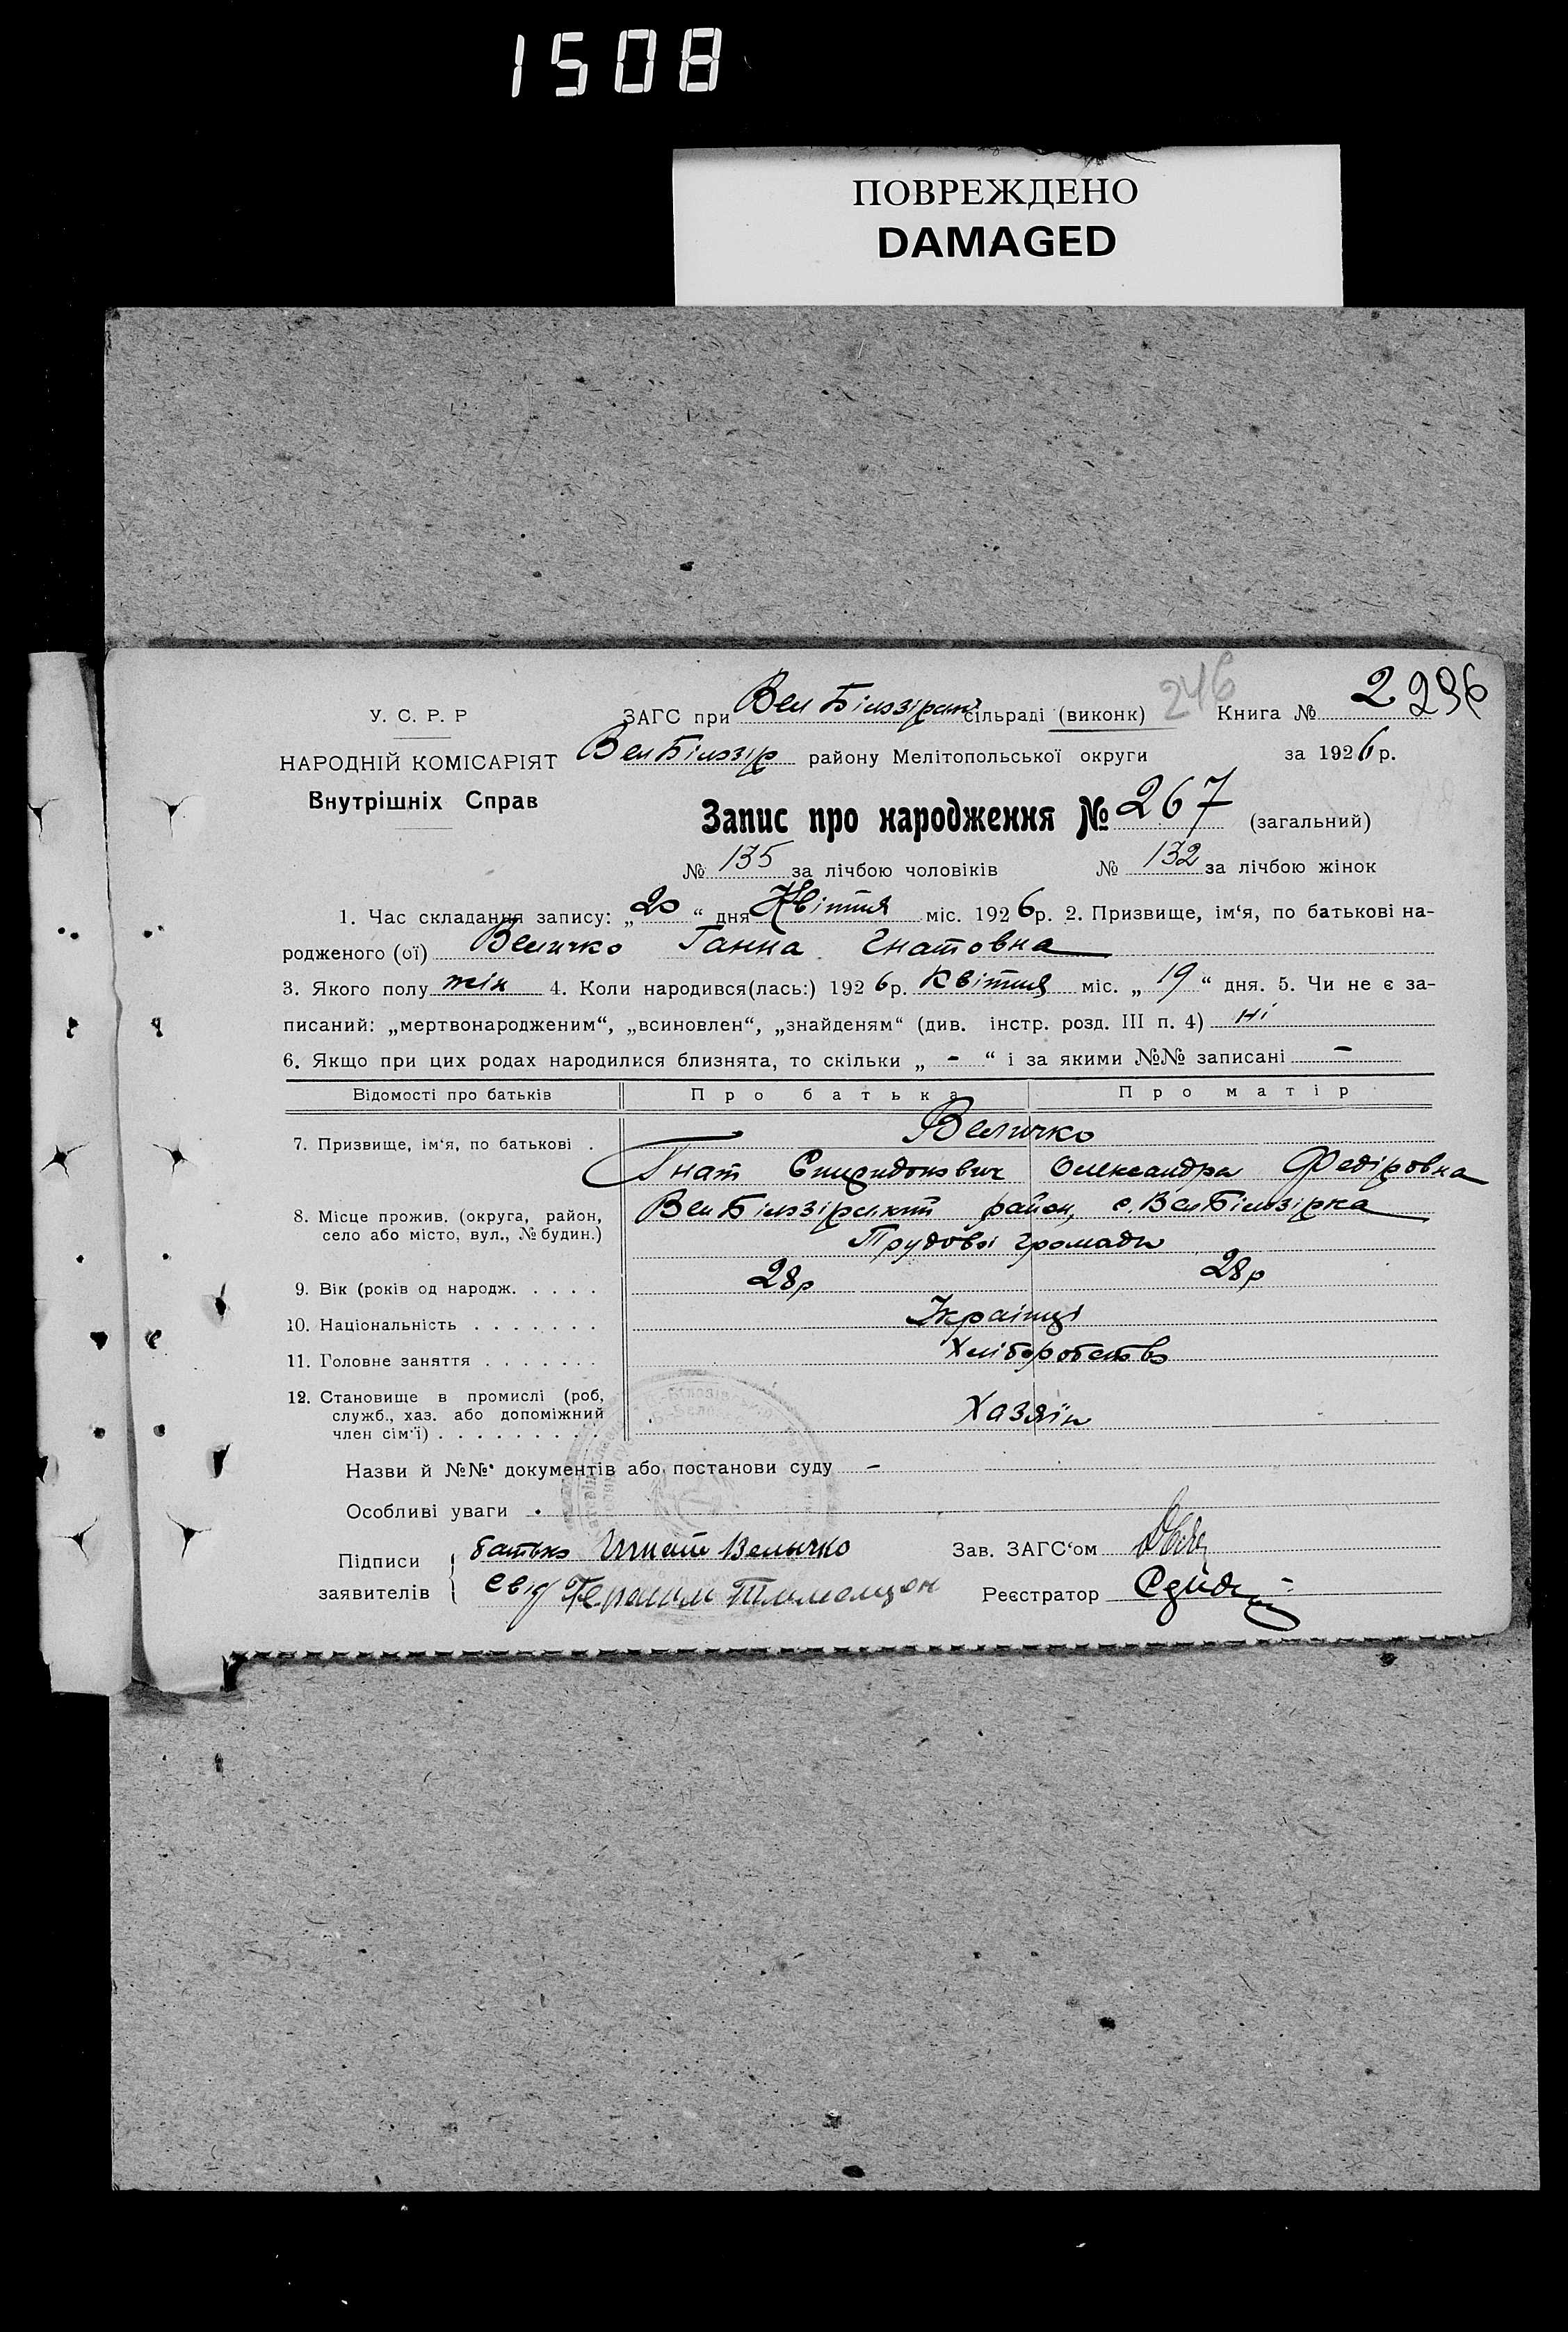 1508
ПОВРЕЖДЕНО
DAMAGED
246
2 296
У. С. Р. Р
ЗАГС при Вел Білозірськ сільраді (виконк) Книга № 2
НАРОДНІЙ КОМІСАРІЯТ Вел Білозір району Мелітопольської округи за 1926 р.
Внутрішніх Справ
Запис про народження № 267 (загальний)
№ 135 за лічбою чоловіків № 132 за лічбою жінок
1. Час складання запису: „20“ дня Квітня міс. 1926р. 2. Призвище, ім‘я, по батькові на-
родженого (ої) Величко Ганна Гнатовна
3. Якого полу жін 4. Коли народився(лась:) 1926р. Квітня міс. „19“ дня. 5. Чи не є за-
писаний: „мертвонародженим“, „всиновлен“, „знайденям“ (див. інстр. розд. III п. 4) ні
6. Якщо при цих родах народилися близнята, то скільки „ - “ і за якими №№ записані -
Відомості про батьків Про батька Про матір
7. Призвище, ім‘я, по батькові . Величко
Гнат Спиридонович Олександра Федіровна
8. Місце прожив. (округа, район, Вел Білозірський район, с. Вел Білозірка
село або місто, вул., № будин.) Трудової громади
9. Вік (років од народж. . . . . 28р 28р
10. Національність . . . . . . . Українці
11. Головне заняття . . . . . . . Хліборобство
12. Становище в промислі (роб,
служб., хаз. або допоміжний Хазяїн
член сім‘ї) . . . . . . . . .
Назви й №№ документів або постанови суду -
Особливі уваги
Підписи батько Игнат Величко Зав. ЗАГС‘ом
заявителів Свід Герасим Реєстратор